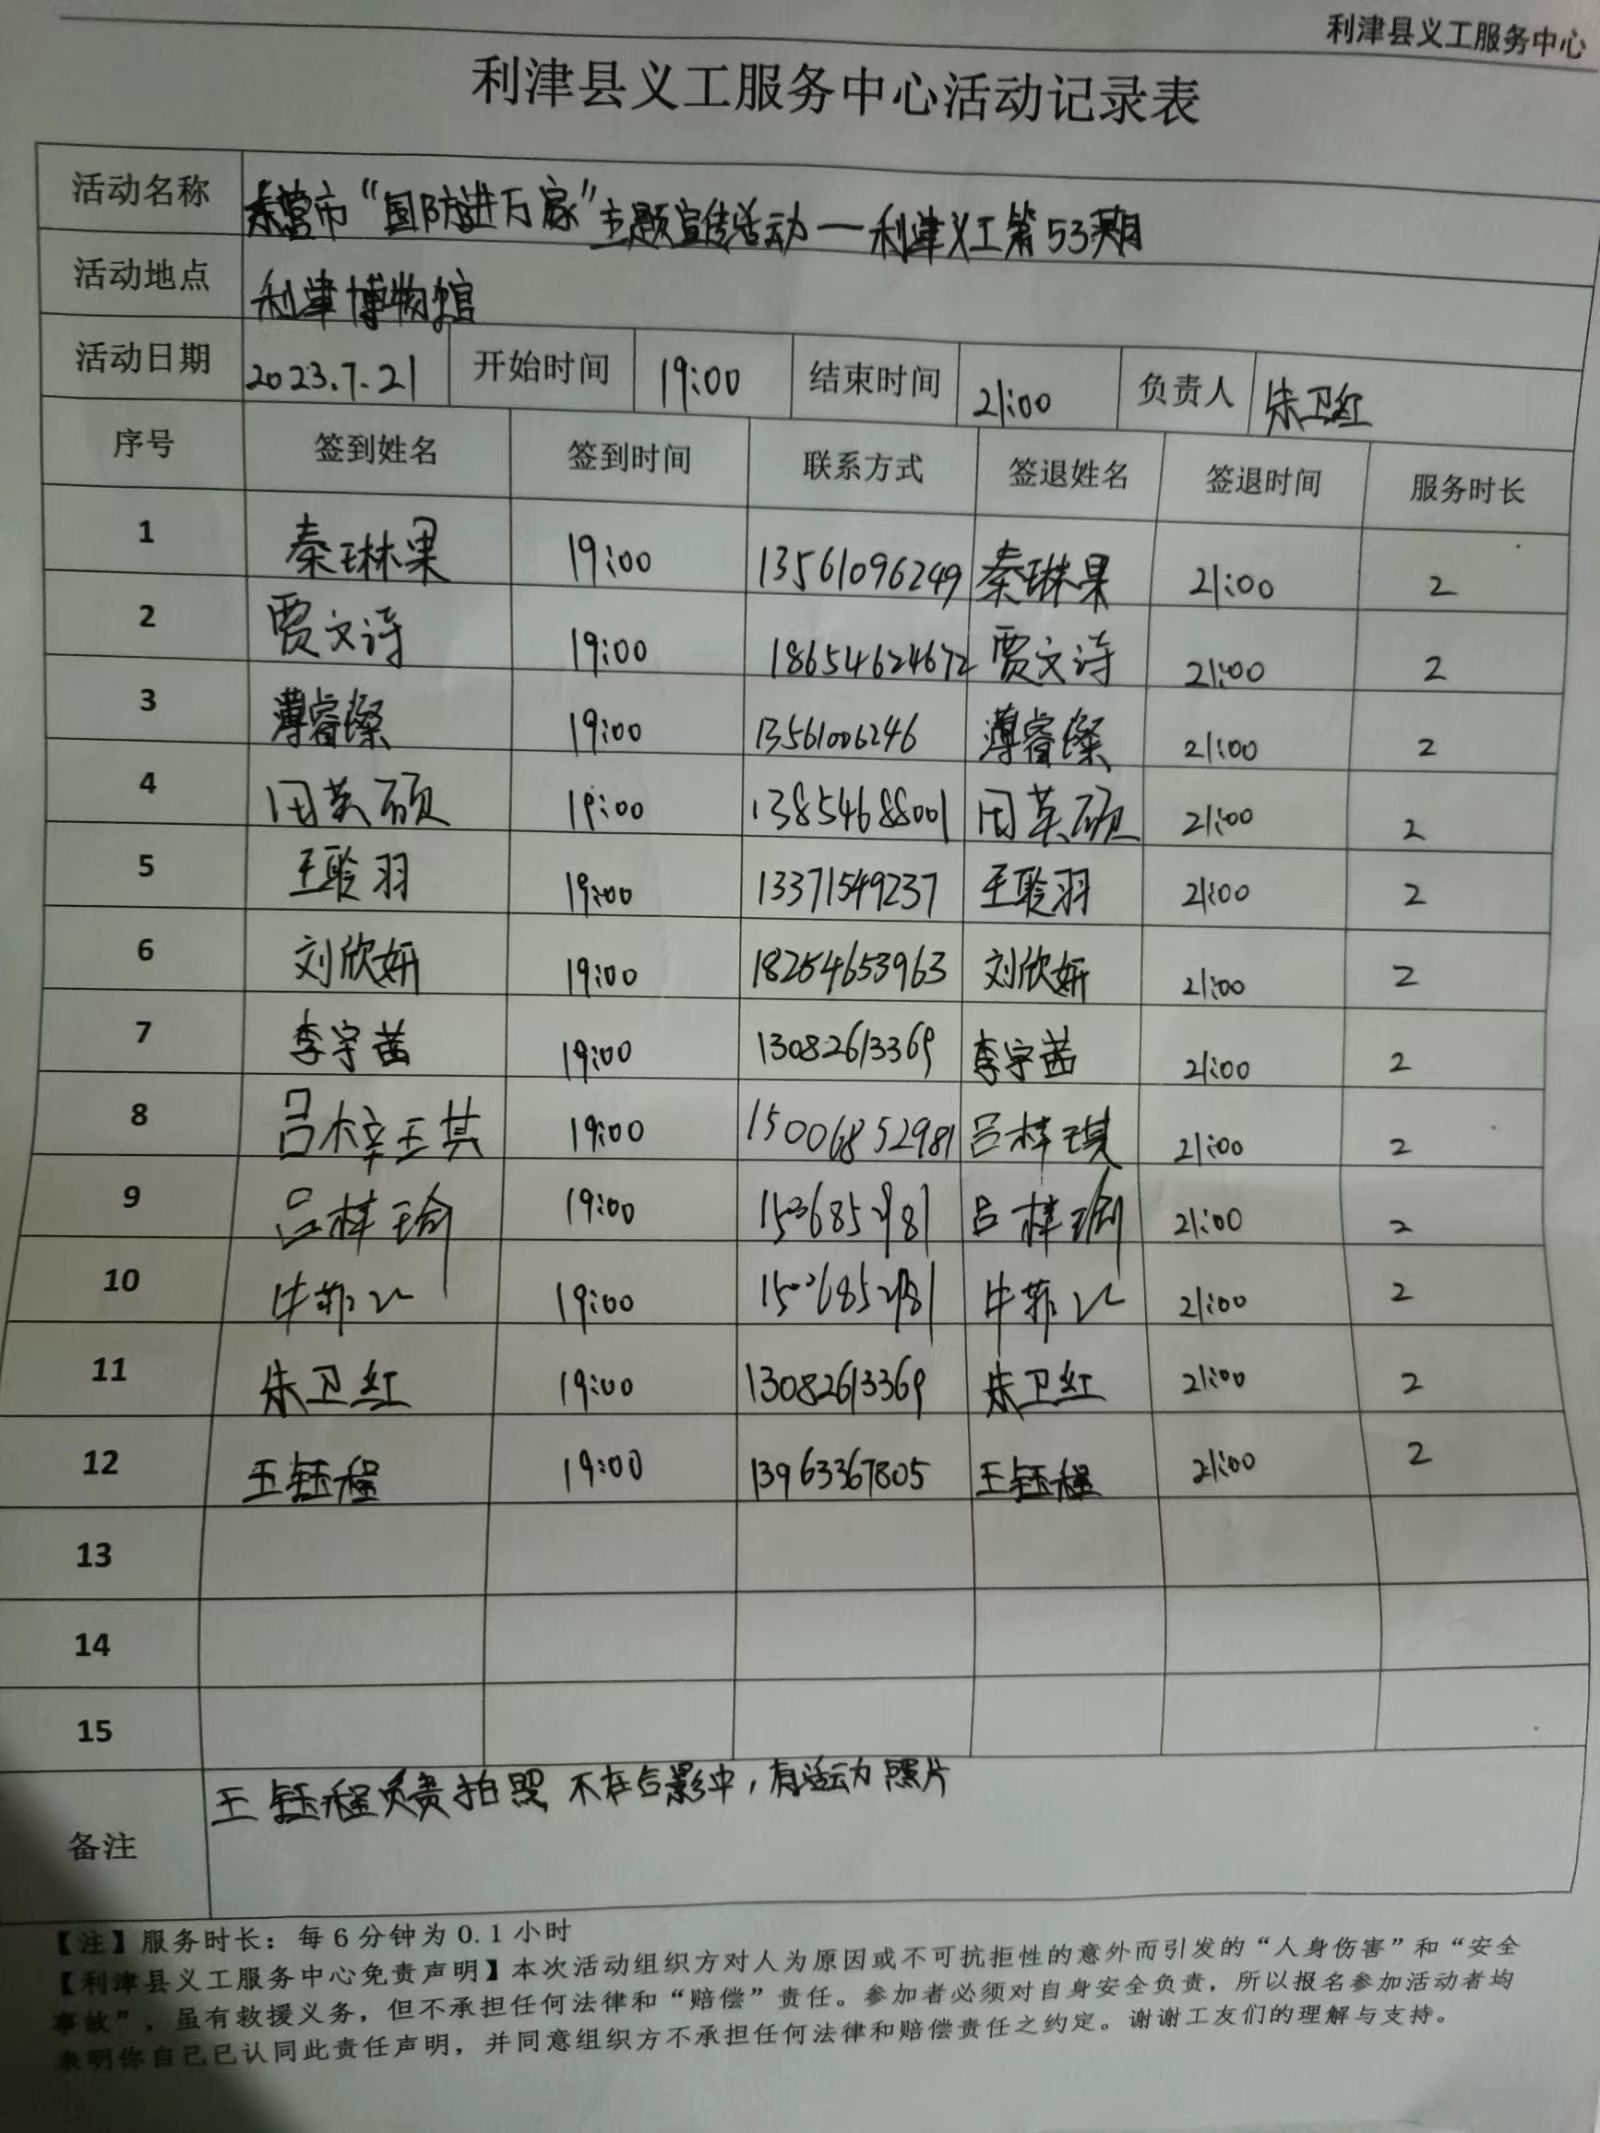 利津县义工服务中心
利津县义工服务中心活动记录表
活动名称 东营市“国防进万家”主题宣传活动一利津义工第53期
活动地点 利津博物馆
活动日期 2023.7.21 开始时间 19:00 结束时间 21:00 负责人 朱卫红
序号 签到姓名 签到时间 联系方式 签退姓名 签退时间 服务时长
1 秦琳果 19:00 13561096249 秦琳果 21:00 2
2 贾文诗 19:00 18654624672 贾文诗 21:00 2
3 薄睿燦 19:00 13561006246 薄睿燦 21:00 2
4 田英硕 19:00 13854688001 田英硕 21:00 2
5 王聆羽 19:00 13371549237 王聆羽 21:00 2
6 刘欣妍 19:00 18254653963 刘欣妍 21:00 2
7 李宇茜 19:00 13082613369 李宇茜 21:00 2
8 吕梓琪 19:00 15006852981 吕梓琪 21:00 2
9 吕梓瑜 19:00 21:00 2
10 19:00 21:00 2
11 朱卫红 19:00 13082613369 朱卫红 21:00 2
12 王钰程 19:00 13963367805 王钰程 21:00 2
13
14
15
备注 王钰程负责拍照 不在合影中，有活动照片
【注】服务时长：每6分钟为0.1小时
【利津县义工服务中心免责声明】本次活动组织方对人为原因或不可抗拒性的意外而引发的“人身伤害”和“安全
事故”，虽有救援义务，但不承担任何法律和“赔偿”责任。参加者必须对自身安全负责，所以报名参加活动者均
表明你自己已认同此责任声明，并同意组织方不承担任何法律和赔偿责任之约定。谢谢工友们的理解与支持。